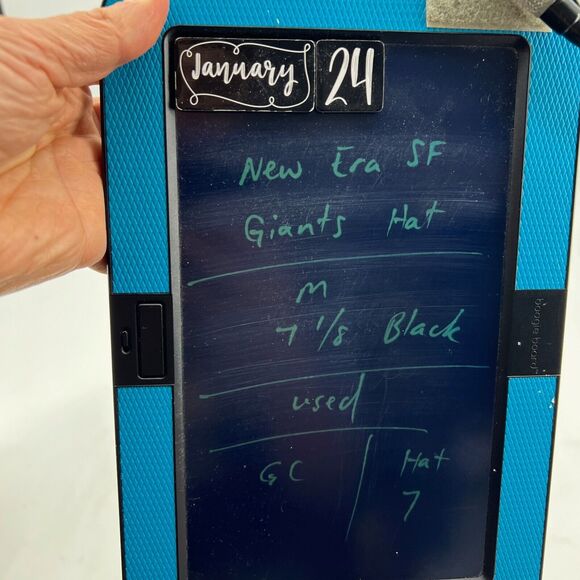 January 24
New Era SF
Giants Hat
M
7 1/8 Black
used
GC Hat
7
boogie board